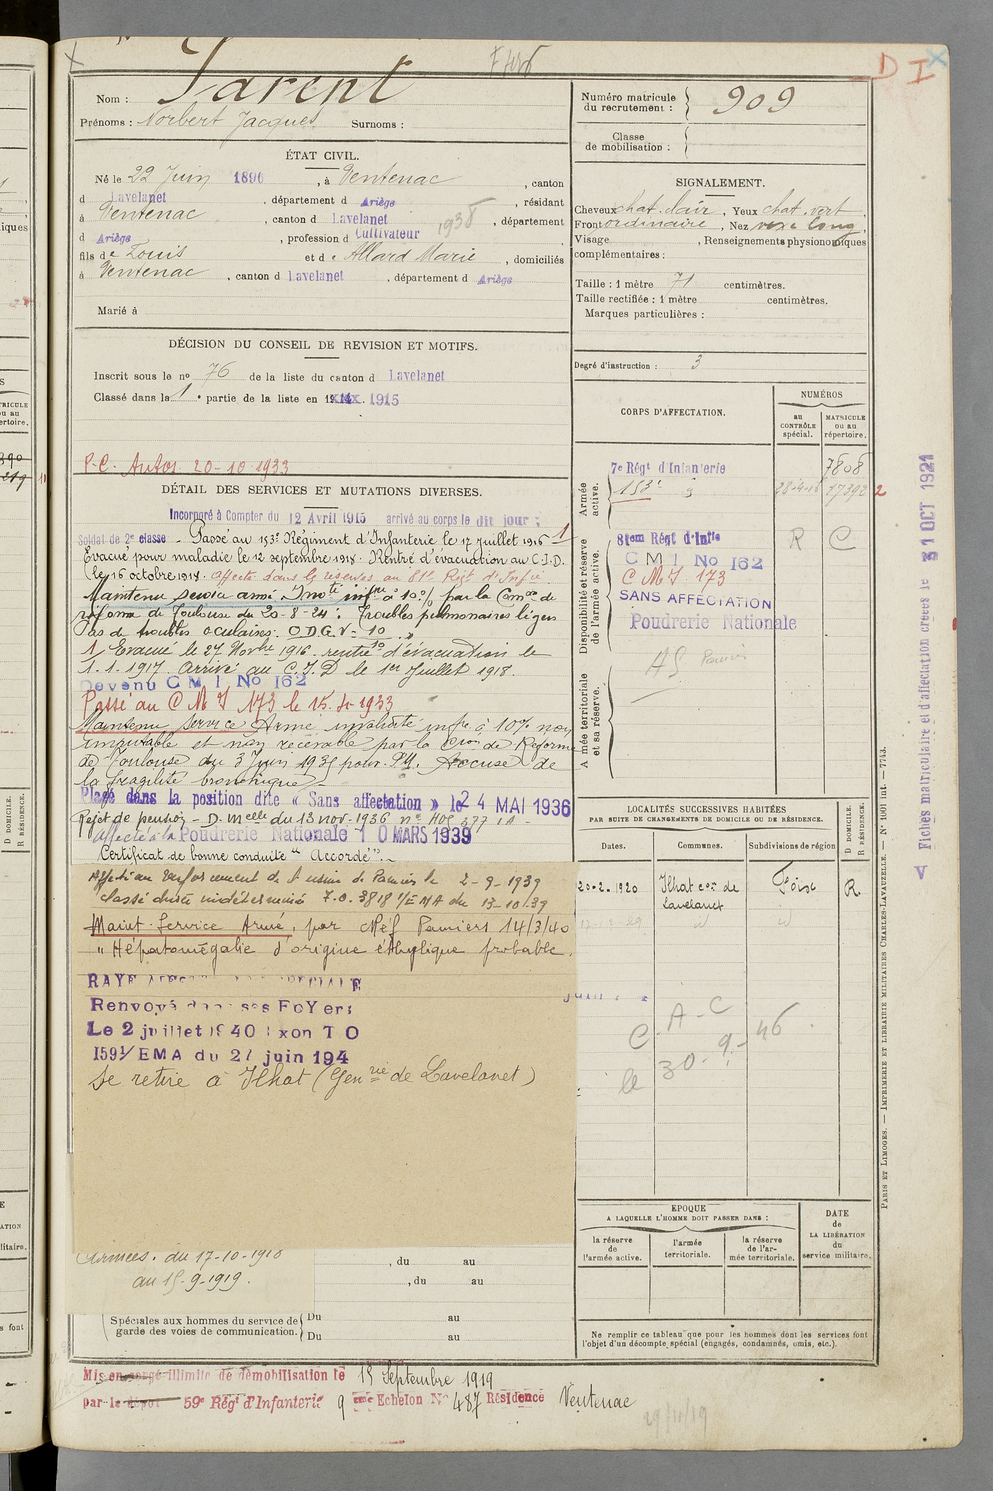 Nom : Parent
Prénoms : Norbert Jacques Surnoms :
ÉTAT CIVIL.
Né le 22 Juin 1896, à Ventenac, canton
d Lavelanet, département d Ariège, résidant
à Ventenac, canton d Lavelanet 1938, département
d Ariège, profession d Cultivateur
fils de Louis et de Allard Marie, domiciliés
à Ventenac, canton d Lavelanet, département d Ariège
Marié à
DÉCISION DU CONSEIL DE REVISION ET MOTIFS.
Inscrit sous le no 76 de la liste du canton d Lavelanet
Classé dans la 1e partie de la liste en 1915
P.C. Autos 20-10-1933
DÉTAIL DES SERVICES ET MUTATIONS DIVERSES.
Incorporé à Compter du 12 Avril 1915 arrivé au corps le dit jour ;
Soldat de 2e classe - Passé au 153e Régiment d'Infanterie le 17 juillet 1916 - 1
Evacué pour maladie le 12 septembre 1918. Rentré d'évacuation au C.I.D.
le 16 octobre 1918. Affecté dans les réserves au 81e Régt d'Infie
Maintenu service armé Inv.té infre à 10% par la Comon de
réforme de Toulouse du 20-8-24 : Troubles pulmonaires légers
Pas de troubles oculaires. O.D.G.V- 10
1 Evacué le 27 Novbre 1916. rentré d'évacuation le
1.1.1917. Arrivé au C.I.D le 1er Juillet 1918.
Devenu C M I No 162
Passé au C M I 173 le 15.4-1933
Maintenu service Armé invalidité infre à 10% non
imputable et non recevable par la Cion de Réforme
de Toulouse du 3 Juin 1935 pour. Accuse de
la fragilité bronchique
Placé dans la position dite « Sans affectation » le 24 MAI 1936
Rejet de pension - D. Melle du 13 nov. 1936
affecté à la Poudrerie Nationale 10 MARS 1939
Certificat de bonne conduite "Accordé".
Affectation Renforcement de l'usine de Pamiers le 2-9-1939
classé durée indéterminée T.O. 3818 1/EMA du 13-10-39
Maint. Service Armé, par Méf Pamiers 14/3/40
" Hépatomégalie d'origine éthylique probable.
RAYE
Renvoyé dans ses FoYers
Le 2 juillet 1940
1591/EMA du 27 juin 194
Se retire à Ilhat (Genrie de Lavelanet)
Armées. du 17-10-1918
au 15-9-1919.
, du au
, du au
Spéciales aux hommes du service de garde des voies de communication.
Du au
Du au
Mis en congé illimité de démobilisation le 15 Septembre 1919
par le dépôt 59e Régt d'Infanterie 9 eme Echelon No 487 Résidence Ventenac
29/11/19
D I
Numéro matricule du recrutement : 909
Classe de mobilisation :
SIGNALEMENT.
Cheveux chat. clair, Yeux chat. vert,
Front ordinaire, Nez long,
Visage , Renseignements physionomiques
complémentaires :
Taille : 1 mètre 71 centimètres.
Taille rectifiée : 1 mètre centimètres.
Marques particulières :
Degré d'instruction : 3
CORPS D'AFFECTATION.
NUMÉROS
au CONTRÔLE spécial.
MATRICULE ou au répertoire.
Armée active.
7e Régt d'Infanterie 7808
153e 17392
Disponibilité et réserve de l'armée active.
81em Régt d'Infie R C
C M I No 162
C M I 173
SANS AFFECTATION
Poudrerie Nationale
AS Pamiers
Armée territoriale et sa réserve.
LOCALITÉS SUCCESSIVES HABITÉES
PAR SUITE DE CHANGEMENTS DE DOMICILE OU DE RÉSIDENCE.
Dates. Communes. Subdivisions de région
D DOMICILE.
R RÉSIDENCE.
20-2-1920 Ilhat con de Foix R
Lavelanet
C. A - C
le 30-9-46
EPOQUE
A LAQUELLE L'HOMME DOIT PASSER DANS :
la réserve de l'armée active.
l'armée territoriale.
la réserve de l'armée territoriale.
DATE de LA LIBÉRATION du service militaire.
Ne remplir ce tableau que pour les hommes dont les services font
l'objet d'un décompte spécial (engagés, condamnés, omis, etc.).
PARIS ET LIMOGES. — IMPRIMERIE ET LIBRAIRIE MILITAIRES CHARLES-LAVAUZELLE. — No 1001 int — 7743.
Fiches matriculaire et d'affectation créées le 31 OCT 1921